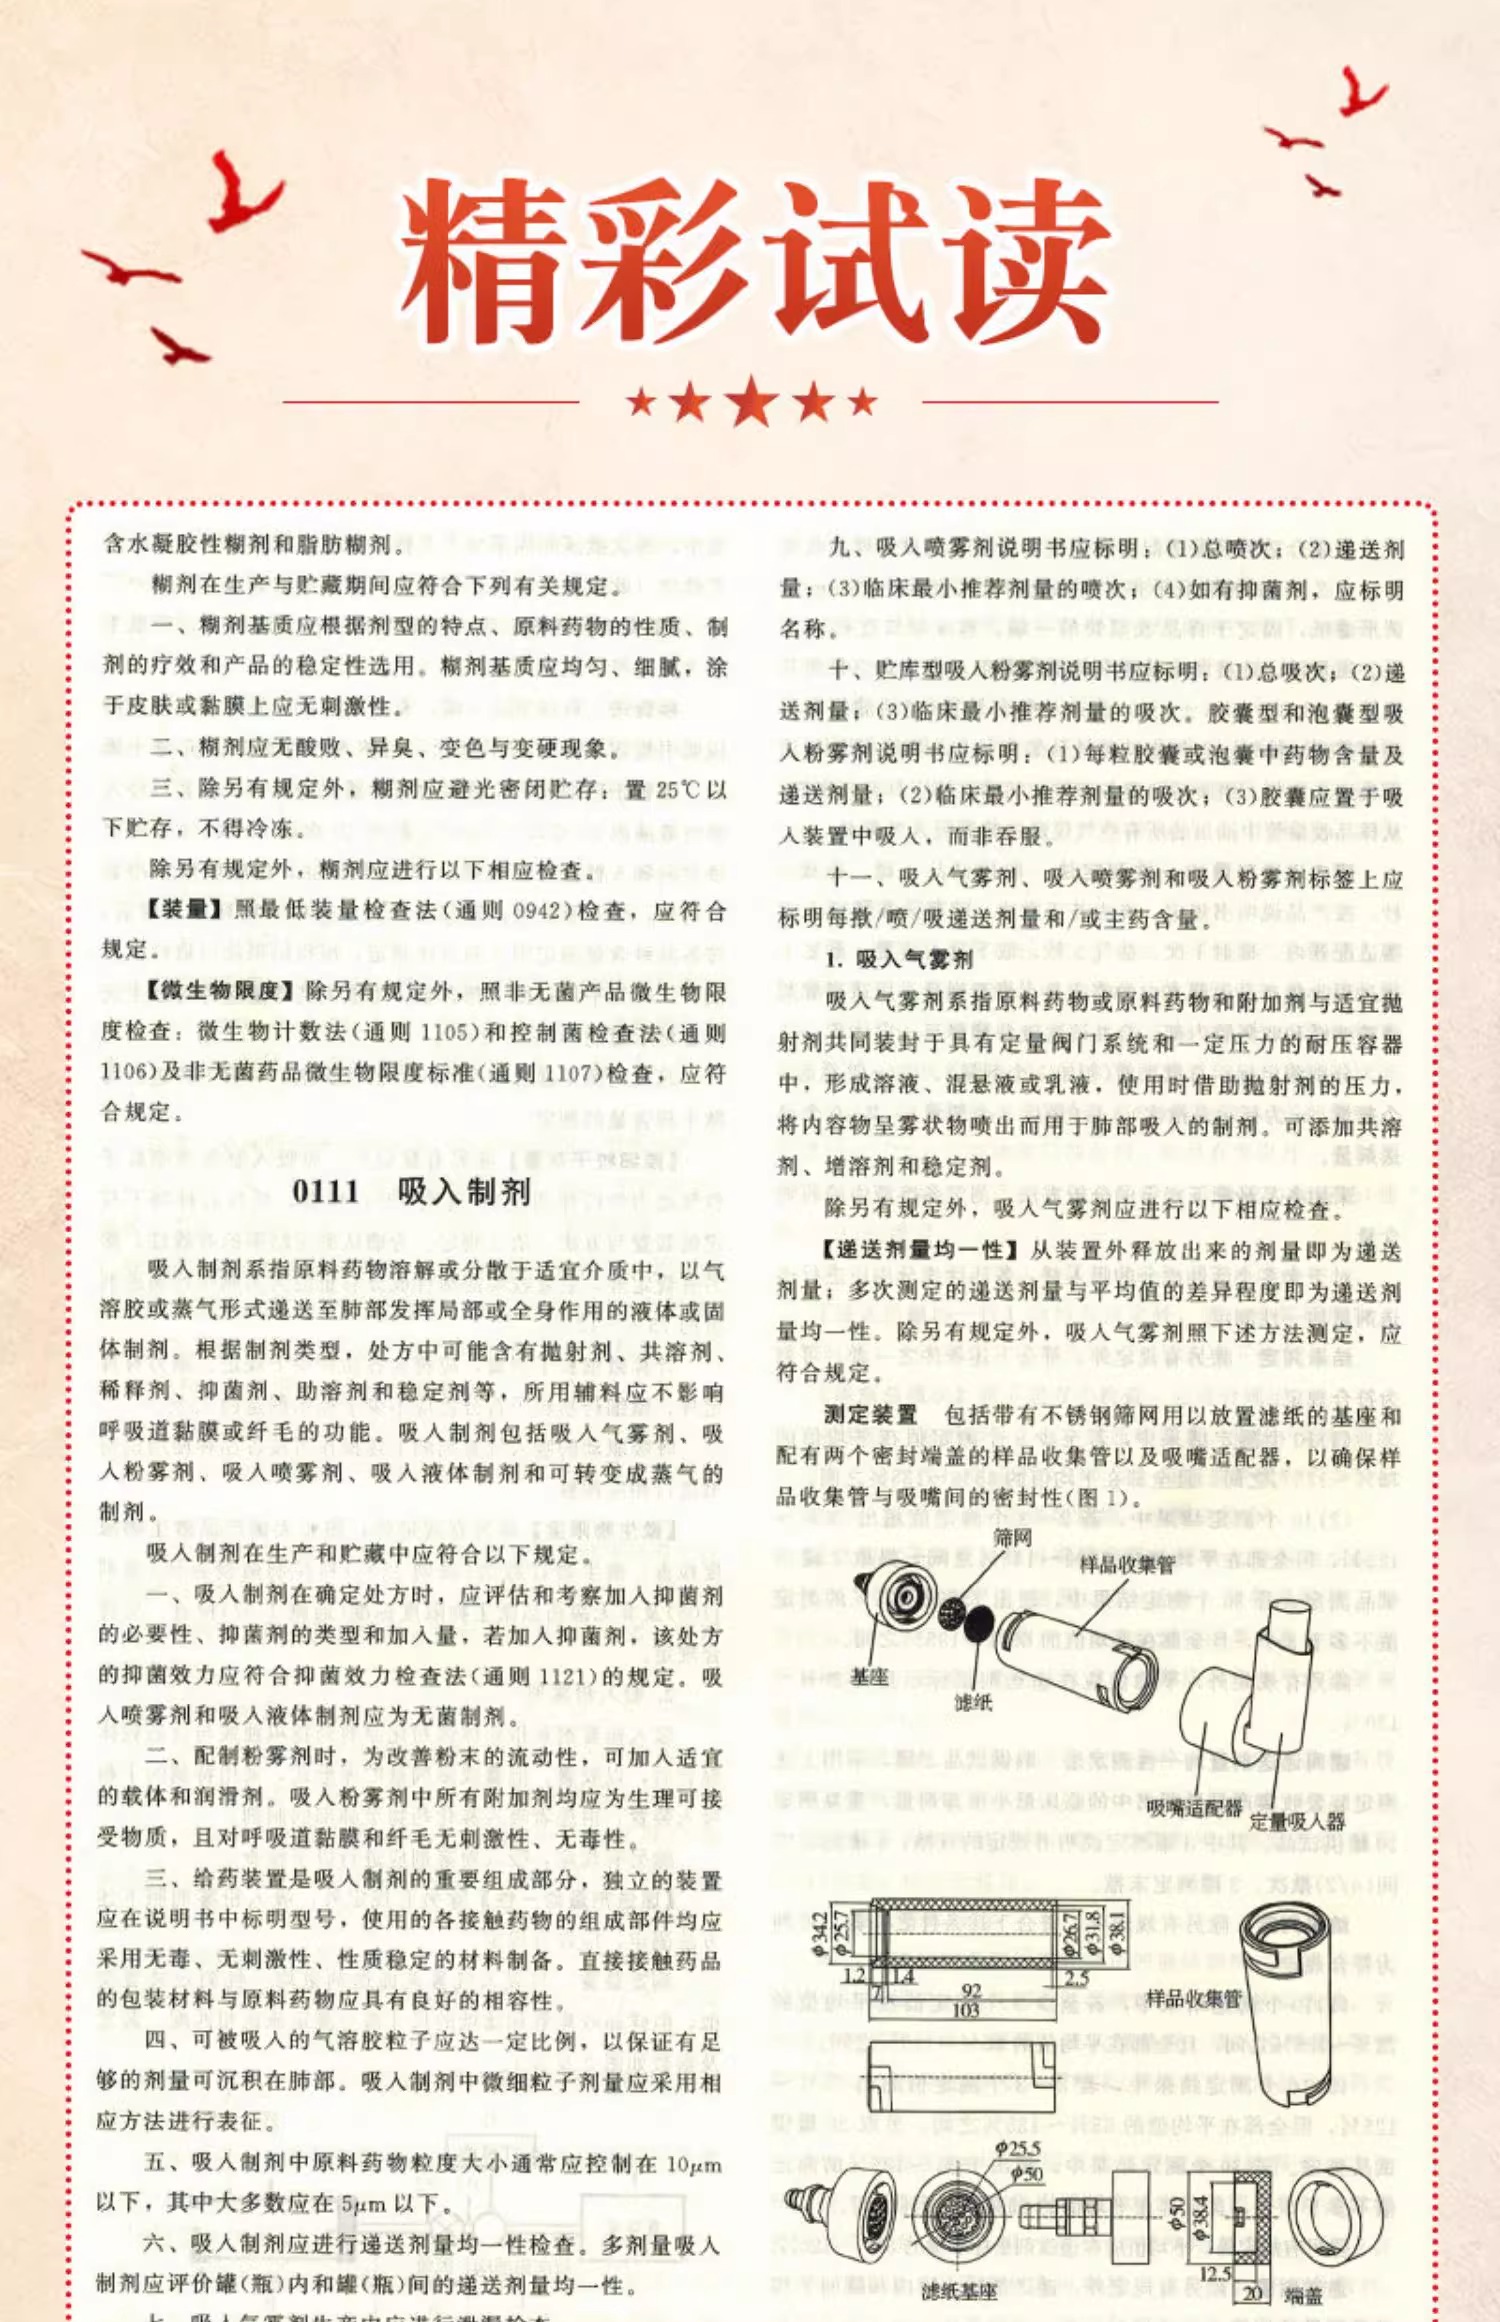 精彩试读
含水凝胶性糊剂和脂肪糊剂。
糊剂在生产与贮藏期间应符合下列有关规定。
一、糊剂基质应根据剂型的特点、原料药物的性质、制
剂的疗效和产品的稳定性选用。糊剂基质应均匀、细腻，涂
于皮肤或黏膜上应无刺激性。
二、糊剂应无酸败、异臭、变色与变硬现象。
三、除另有规定外，糊剂应避光密闭贮存；置 25℃以
下贮存，不得冷冻。
除另有规定外，糊剂应进行以下相应检查。
【装量】照最低装量检查法(通则 0942)检查，应符合
规定。
【微生物限度】除另有规定外，照非无菌产品微生物限
度检查：微生物计数法(通则 1105)和控制菌检查法(通则
1106)及非无菌药品微生物限度标准(通则 1107)检查，应符
合规定。
0111 吸入制剂
吸入制剂系指原料药物溶解或分散于适宜介质中，以气
溶胶或蒸气形式递送至肺部发挥局部或全身作用的液体或固
体制剂。根据制剂类型，处方中可能含有抛射剂、共溶剂、
稀释剂、抑菌剂、助溶剂和稳定剂等，所用辅料应不影响
呼吸道黏膜或纤毛的功能。吸入制剂包括吸入气雾剂、吸
入粉雾剂、吸入喷雾剂、吸入液体制剂和可转变成蒸气的
制剂。
吸入制剂在生产和贮藏中应符合以下规定。
一、吸入制剂在确定处方时，应评估和考察加入抑菌剂
的必要性、抑菌剂的类型和加入量，若加入抑菌剂，该处方
的抑菌效力应符合抑菌效力检查法(通则 1121)的规定。吸
入喷雾剂和吸入液体制剂应为无菌制剂。
二、配制粉雾剂时，为改善粉末的流动性，可加入适宜
的载体和润滑剂。吸入粉雾剂中所有附加剂均应为生理可接
受物质，且对呼吸道黏膜和纤毛无刺激性、无毒性。
三、给药装置是吸入制剂的重要组成部分，独立的装置
应在说明书中标明型号，使用的各接触药物的组成部件均应
采用无毒、无刺激性、性质稳定的材料制备。直接接触药品
的包装材料与原料药物应具有良好的相容性。
四、可被吸入的气溶胶粒子应达一定比例，以保证有足
够的剂量可沉积在肺部。吸入制剂中微细粒子剂量应采用相
应方法进行表征。
五、吸入制剂中原料药物粒度大小通常应控制在 10μm
以下，其中大多数应在 5μm 以下。
六、吸入制剂应进行递送剂量均一性检查。多剂量吸入
制剂应评价罐(瓶)内和罐(瓶)间的递送剂量均一性。
九、吸入喷雾剂说明书应标明：(1)总喷次；(2)递送剂
量；(3)临床最小推荐剂量的喷次；(4)如有抑菌剂，应标明
名称。
十、贮库型吸入粉雾剂说明书应标明：(1)总吸次；(2)递
送剂量；(3)临床最小推荐剂量的吸次。胶囊型和泡囊型吸
入粉雾剂说明书应标明：(1)每粒胶囊或泡囊中药物含量及
递送剂量；(2)临床最小推荐剂量的吸次；(3)胶囊应置于吸
入装置中吸入，而非吞服。
十一、吸入气雾剂、吸入喷雾剂和吸入粉雾剂标签上应
标明每揿/喷/吸递送剂量和/或主药含量。
1. 吸入气雾剂
吸入气雾剂系指原料药物或原料药物和附加剂与适宜抛
射剂共同装封于具有定量阀门系统和一定压力的耐压容器
中，形成溶液、混悬液或乳液，使用时借助抛射剂的压力，
将内容物呈雾状物喷出而用于肺部吸入的制剂。可添加共溶
剂、增溶剂和稳定剂。
除另有规定外，吸入气雾剂应进行以下相应检查。
【递送剂量均一性】从装置外释放出来的剂量即为递送
剂量；多次测定的递送剂量与平均值的差异程度即为递送剂
量均一性。除另有规定外，吸入气雾剂照下述方法测定，应
符合规定。
测定装置 包括带有不锈钢筛网用以放置滤纸的基座和
配有两个密封端盖的样品收集管以及吸嘴适配器，以确保样
品收集管与吸嘴间的密封性(图 1)。
筛网
样品收集管
基座
滤纸
吸嘴适配器
定量吸入器
φ34.2
φ25.7
φ26.7
φ31.8
φ38.1
1.2
1.4
2.5
7
92
103
样品收集管
φ25.5
φ50
φ50
φ38.4
12.5
20
滤纸基座
端盖